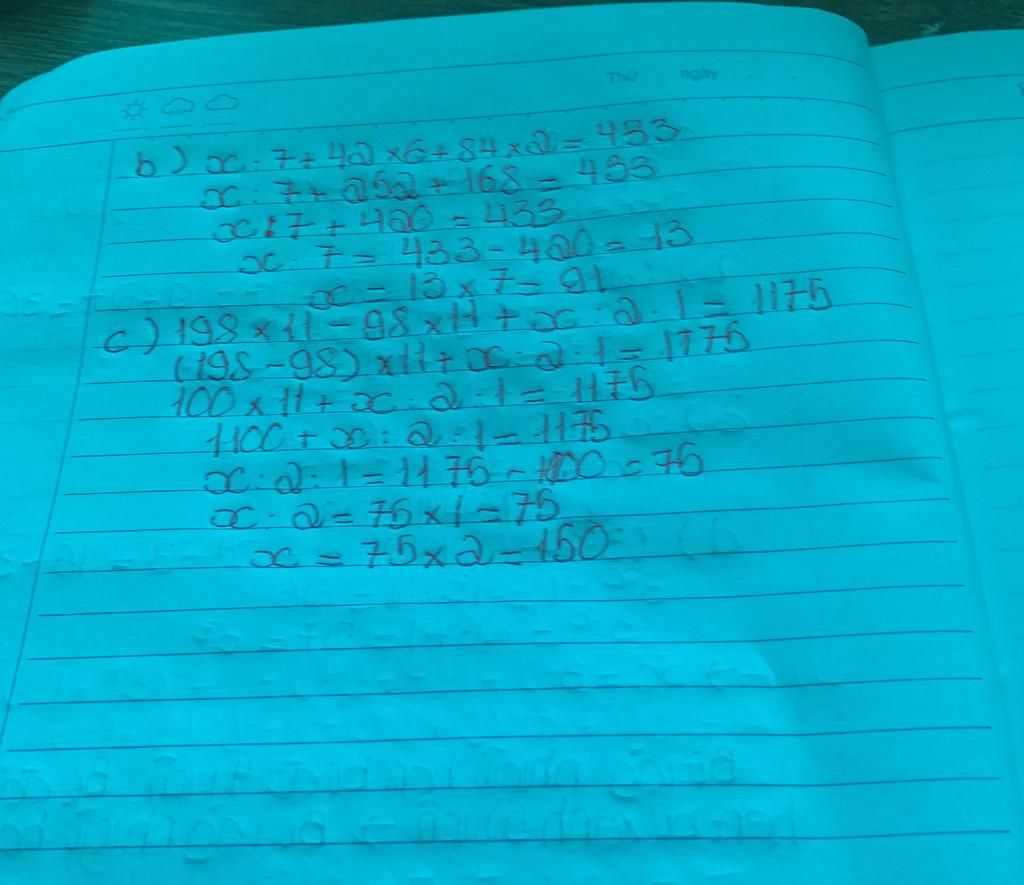 Thứ ngày
b) x : 7 + 42 × 6 + 84 × 2 = 433
x : 7 + 252 + 168 = 433
x : 7 + 420 = 433
x : 7 = 433 - 420 = 13
x = 13 × 7 = 91
c) 198 × 11 - 98 × 11 + x : 2 : 1 = 1175
(198 - 98) × 11 + x : 2 : 1 = 1175
100 × 11 + x : 2 : 1 = 1175
1100 + x : 2 : 1 = 1175
x : 2 : 1 = 1175 - 1100 = 75
x : 2 = 75 × 1 = 75
x = 75 × 2 = 150